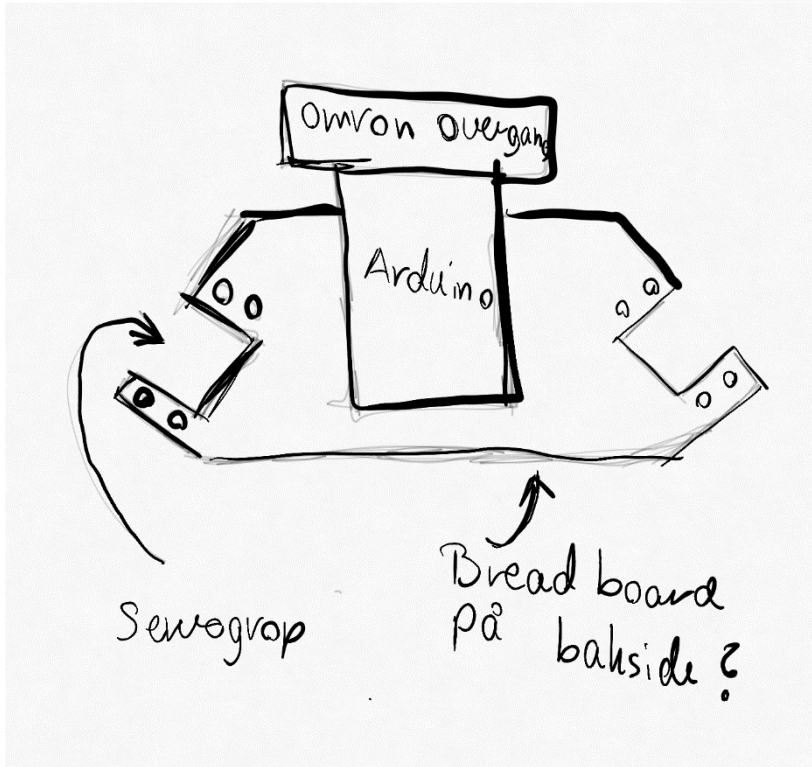 Omron Overgang
Arduino
Servogrop
Bread board
på bakside?